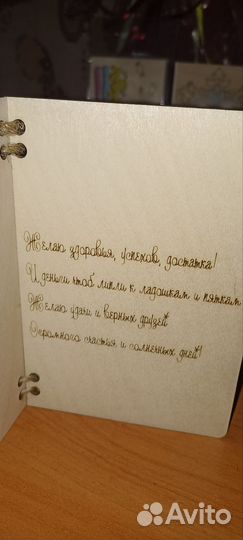 Желаю здоровья, успехов, достатка!
И деньги чтоб липли к ладошкам и пяткам
Желаю удачи и верных друзей
Огромного счастья и солнечных дней!
Avito